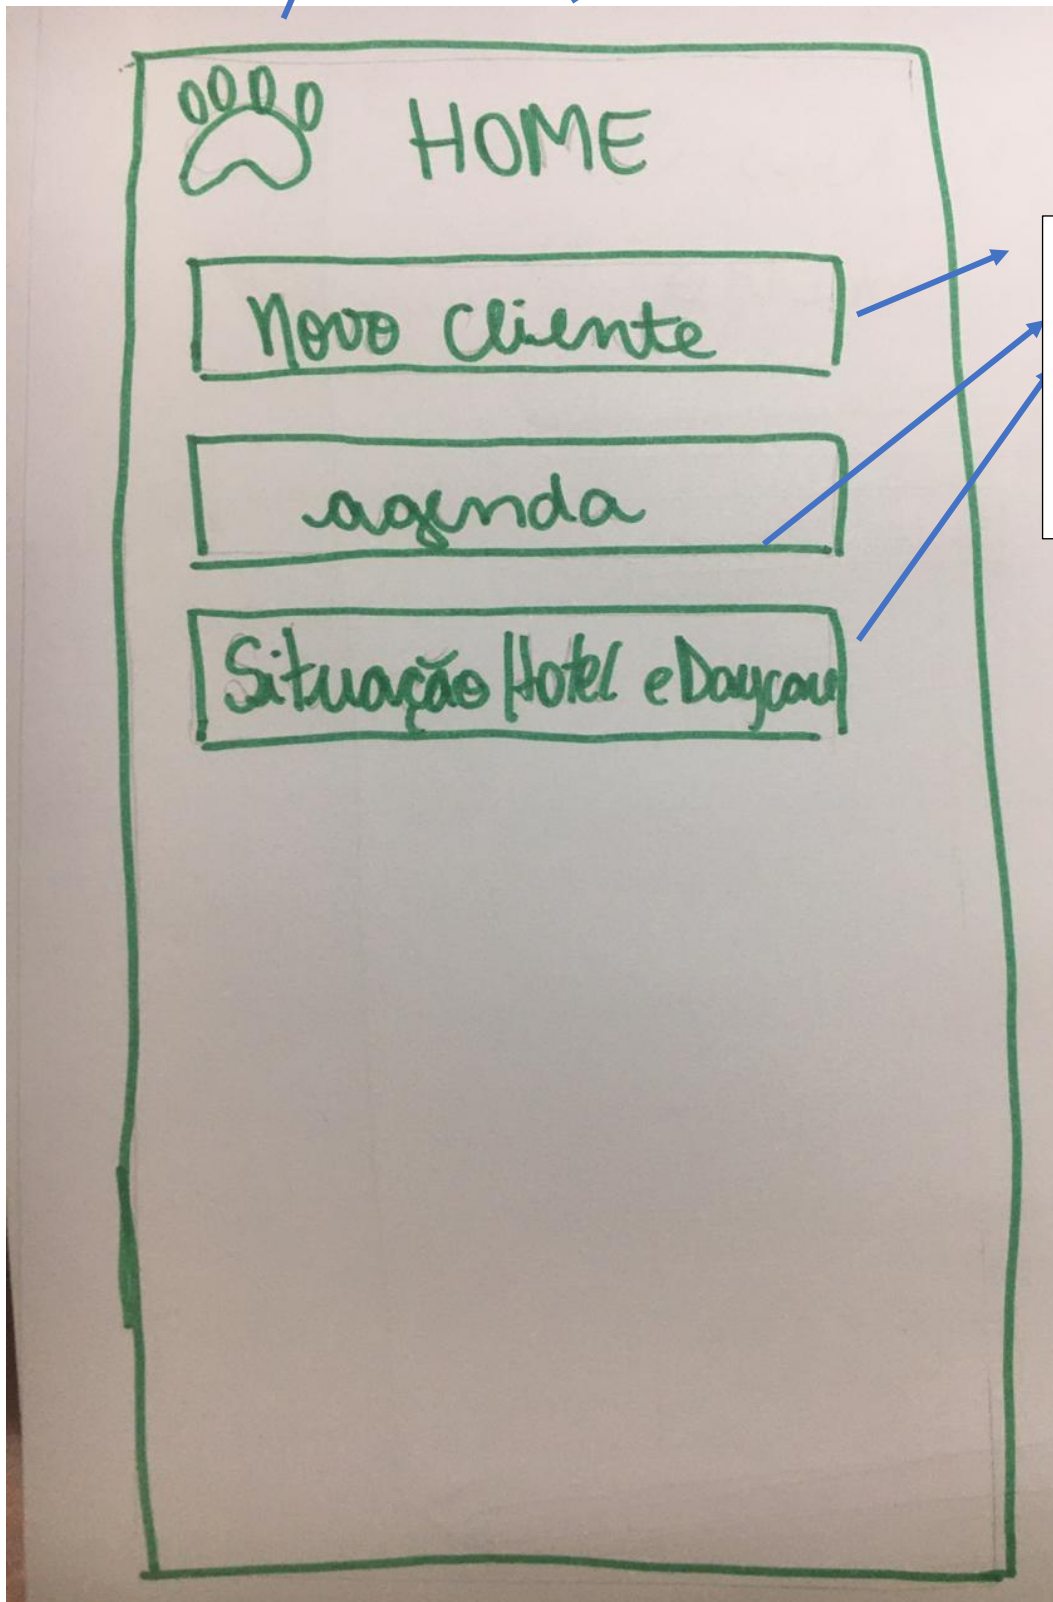 HOME
Novo Cliente
agenda
Situação Hotel e Daycare